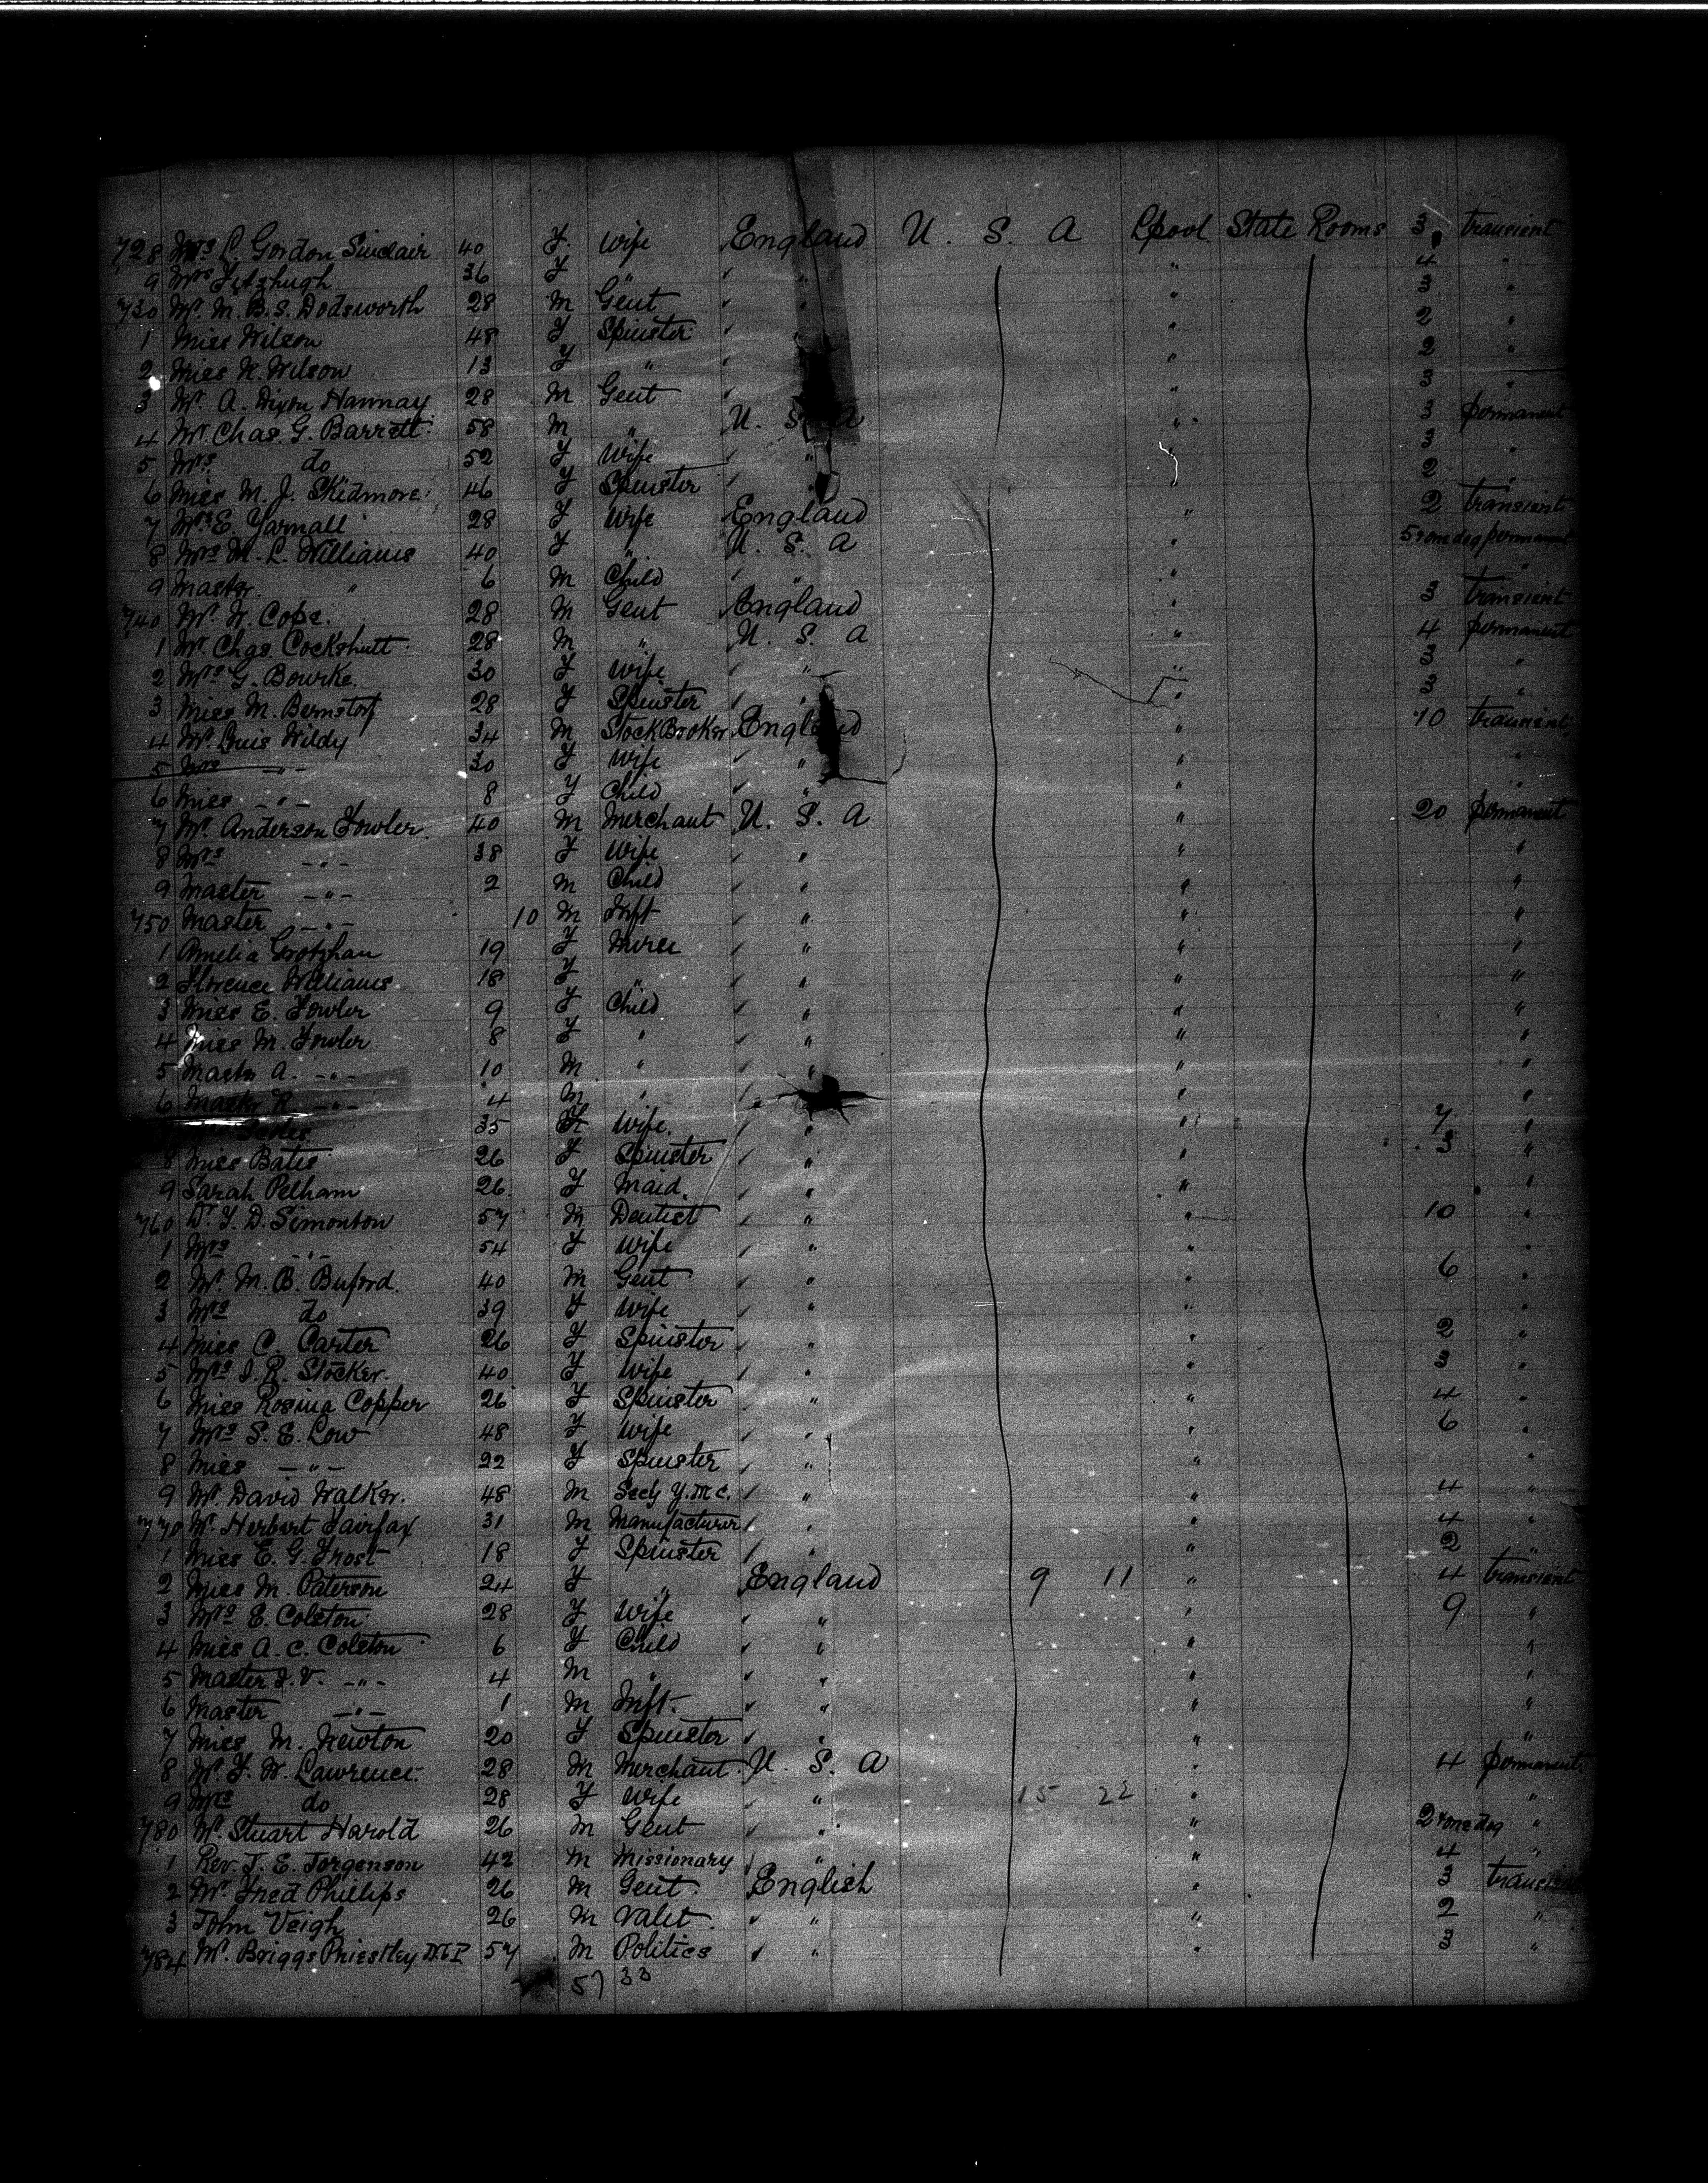 728 Mrs L. Gordon Sinclair 40 F. Wife England U. S. A Lpool State Rooms 3 transient
9 Mrs Fitzhugh 36 F " " " 4 "
730 Mr. M. B. S. Dodsworth 28 M Gent " " 3 "
1 Miss Wilson 48 F Spinster " 2 "
2 Miss K. Wilson 13 F " " 2 "
3 Mr. A. Dixon Hannay 28 M Gent " 3 "
4 Mr. Chas. G. Barrett 58 M " U. S. A " 3 permanent
5 Mrs do 52 F Wife " 3 "
6 Miss M. J. Skidmore 46 F Spinster 2 "
7 Mrs E. Yarnall 28 F Wife England " 2 transient
8 Mrs M. L. Williams 40 F " U. S. A " 5 & one dog permanent
9 Master " 6 M Child " " "
740 Mr. W. Cope. 28 M Gent England " 3 transient
1 Mr. Chas. Cockshutt 28 M " U. S. A " 4 permanent
2 Mrs G. Bourke. 30 F Wife " " 3 "
3 Miss M. Bernstorf 28 F Spinster " " 3 "
4 Mr. Louis Wildy 34 M Stock Broker England " 10 transient
5 Mrs -"- 30 F Wife " " "
6 Miss -"- 8 F Child " " "
7 Mr. Anderson Fowler 40 M Merchant U. S. A " 20 permanent
8 Mrs -"- 38 F Wife " " "
9 Master -"- 2 M Child " " "
750 Master -"- 10 M Inft " " "
1 Amelia Grotzhan 19 F Nurse " " "
2 Florence Williams 18 F " " " "
3 Miss E. Fowler 9 F Child " " "
4 Miss M. Fowler 8 F " " " "
5 Mastr A. -"- 10 M " " " "
6 Mastr R -"- 4 M " " "
35 F Wife. " " 7 "
8 Miss Bates 26 F Spinster " " 3 "
9 Sarah Pelham 26 F Maid. " " "
760 Dr. T. D. Simonton 57 M Dentist " " 10 "
1 Mrs -"- 54 F Wife " " "
2 Mr. M. B. Buford. 40 M Gent " " 6 "
3 Mrs do 39 F Wife " " "
4 Miss C. Carter 26 F Spinster " " 2 "
5 Mrs I. R. Stocker. 40 F Wife " " 3 "
6 Miss Rosina Copper 26 F Spinster " " 4 "
7 Mrs S. E. Low 48 F Wife " " 6 "
8 Miss -"- 22 F Spinster " " "
9 Mr. David Walker. 48 M Secty Y. M. C. " " 4 "
770 Mr. Herbert Fairfax 31 M Manufacturer " " 4 "
1 Miss E. G. Frost 18 F Spinster " " 2 "
2 Miss M. Paterson 24 F " England 9 11 " 4 transient
3 Mrs E. Colston 28 F Wife " " 9 "
4 Miss A. C. Colston 6 F Child " " "
5 Master J. V. -"- 4 M " " " "
6 Master -"- 1 M Inft. " " "
7 Miss M. Newton 20 F Spinster " " "
8 Mr. F. W. Lawrence. 28 M Merchant U. S. A " 4 permanent
9 Mrs do 28 F Wife " 15 22 " "
780 Mr. Stuart Harold 26 M Gent " " 2 & one dog "
1 Rev. J. E. Jorgenson 42 M Missionary " " 4 "
2 Mr. Fred Phillips 26 M Gent. English " 3 transient
3 John Veigh 26 M Valet. " " 2 "
784 Mr. Briggs Priestley 57 M Politics " " 3 "
57 33